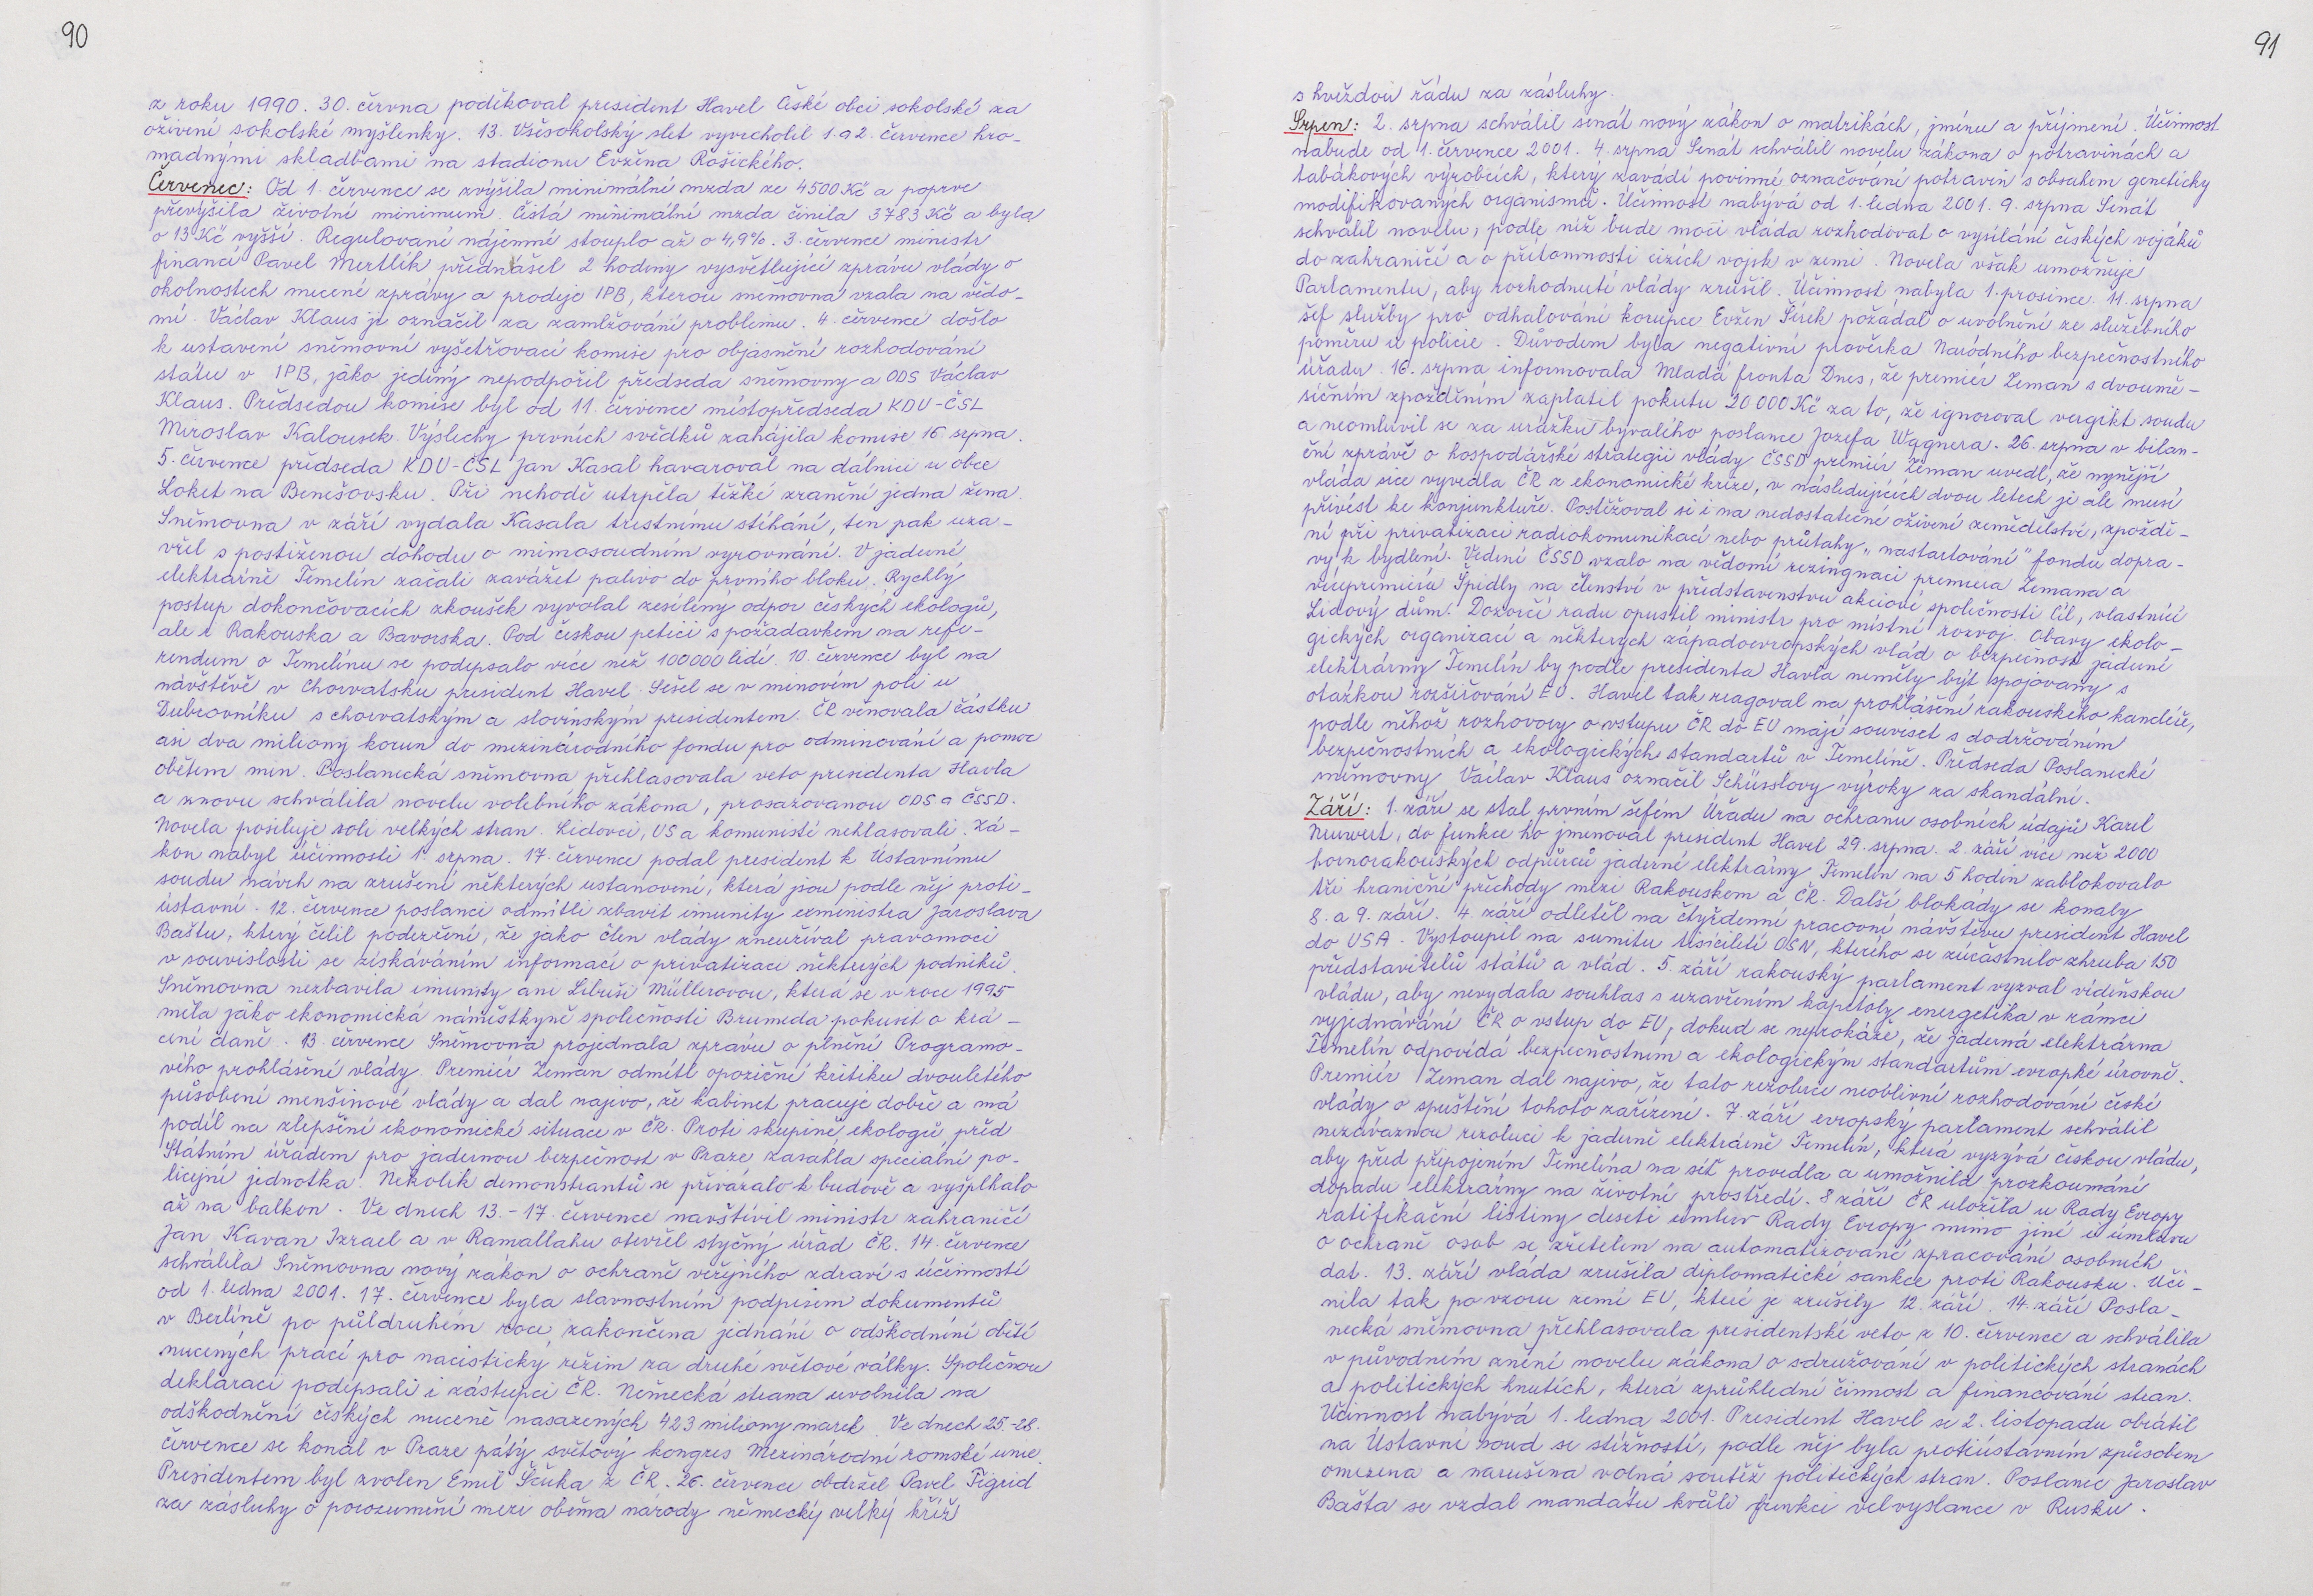 90
z roku 1990. 30. června poděkoval president Havel České obci sokolské za
oživení sokolské myšlenky. 13. Všesokolský slet vyvrcholil 1. a 2. července hro-
madnými skladbami na stadionu Evžena Rošického.
Červenec: Od 1. července se zvýšila minimální mzda ze 4500 Kč a poprve
převýšila životní minimum. Čistá minimální mzda činila 3783 Kč a byla
o 13 Kč vyšší. Regulované nájemné stouplo až o 4,9%. 3. července ministr
financí Pavel Mertlík přednášel 2 hodiny vysvětlující zprávu vlády o
okolnostech nucené zprávy a prodeje IPB, kterou sněmovna vzala na vědo-
mí. Václav Klaus je označil za zamlžování problému. 4. července došlo
k ustavení sněmovní vyšetřovací komise pro objasnění rozhodování
státu v IPB, jako jediný nepodpořil předseda sněmovny a ODS Václav
Klaus. Předsedou komise byl od 11. července místopředseda KDU-ČSL
Miroslav Kalousek. Výslechy prvních svědků zahájila komise 16 srpna.
5. července předseda KDU-ČSL Jan Kasal havaroval na dálnici u obce
Loket na Benešovsku. Při nehodě utrpěla těžké zranění jedna žena.
Sněmovna v září vydala Kasala trestnímu stíhání, ten pak uza-
vřel s postiženou dohodu o mimosoudním vyrovnání. V jaderné
elektrárně Temelín začali zavážet palivo do prvního bloku. Rychlý
postup dokončovacích zkoušek vyvolal zesílený odpor českých ekologů,
ale i Rakouska a Bavorska. Pod českou petici s požadavkem na refe-
rendum o Temelínu se podepsalo více než 100000 lidí. 10. července byl na
návštěvě v Chorvatsku president Havel. Sešel se v minovém poli u
Dubrovníku s chorvatským a slovinským presidentem. ČR věnovala částku
asi dva miliony korun do mezinárodního fondu pro odminování a pomoc
obětem min. Poslanecká sněmovna přehlasovala veto presidenta Havla
a znovu schválila novelu volebního zákona, prosazovanou ODS a ČSSD.
Novela posiluje roli velkých stran. Lidovci, US a komunisté nehlasovali. Zá-
kon nabyl účinnosti 1. srpna. 17. července podal president k Ústavnímu
soudu návrh na zrušení některých ustanovení, která jsou podle něj proti-
ústavní. 12. července poslanci odmítli zbavit imunity exministra Jaroslava
Baštu, který čelil podezření, že jako člen vlády zneužíval pravomoci
v souvislosti se získáváním informací o privatizaci některých podniků.
Sněmovna nezbavila imunity ani Libuši Müllerovou, která se v roce 1995
měla jako ekonomická náměstkyně společnosti Brumeda pokusit o krá-
cení daně. 13. července Sněmovna projednala zprávu o plnění Programo-
vého prohlášení vlády. Premiér Zeman odmítl opoziční kritiku dvouletého
působení menšinové vlády a dal najevo, že kabinet pracuje dobře a má
podíl na zlepšení ekonomické situace v ČR. Proti skupině ekologů před
Státním úřadem pro jadernou bezpečnost v Praze zasahla speciální po-
licejní jednotka. Několik demonstrantů se přivázalo k budově a vyšplhalo
až na balkon. Ve dnech 13.-17. července navštívil ministr zahraničí
Jan Kavan Izrael a v Ramallahu otevřel styčný úřad ČR. 14. července
schválila Sněmovna nový zákon o ochraně veřejného zdraví s účinností
od 1. ledna 2001. 17. července byla slavnostním podpisem dokumentů
v Berlíně po půldruhém roce zakončena jednání o odškodnění obětí
nucených prací pro nacistický režim za druhé světové války. Společnou
deklaraci podepsali i zástupci ČR. Německá strana uvolnila na
odškodnění českých nuceně nasazených 423 miliony marek. Ve dnech 25.-28.
července se konal v Praze pátý světový kongres Mezinárodní romské unie.
Presidentem byl zvolen Emil Ščuka z ČR. 26. července obdržel Pavel Tigrid
za zásluhy o porozumění mezi oběma národy německý velký kříž
91
s hvězdou řádu za zásluhy.
Srpen: 2. srpna schválil senát nový zákon o matrikách, jménu a příjmení. Účinnost
nabude od 1. července 2001. 4. srpna Senát schválil novelu zákona o potravinách a
tabákových výrobcích, který zavádí povinné označování potravin s obsahem geneticky
modifikovaných organismů. Účinnost nabývá od 1. ledna 2001. 9. srpna Senát
schválil novelu, podle níž bude moci vláda rozhodovat o vysílání českých vojáků
do zahraničí a o přítomnosti cizích vojsk v zemi. Novela však umožňuje
Parlamentu, aby rozhodnutí vlády zrušil. Účinnost nabyla 1. prosince. 11. srpna
šéf služby pro odhalování korupce Evžen Šírek požádal o uvolnění ze služebního
poměru u policie. Důvodem byla negativní prověrka Národního bezpečnostního
úřadu. 16. srpna informovala Mladá fronta Dnes, že premiér Zeman s dvoumě-
síčním zpožděním zaplatil pokutu 20 000 Kč za to, že ignoroval vergikt soudu
a neomluvil se za urážku bývalého poslance Jozefa Wagnera. 26. srpna v bilan-
ční zprávě o hospodářské strategii vlády ČSSD premiér Zeman uvedl, že nynější
vláda sice vyvedla ČR z ekonomické krize, v následujících dvou letech ji ale musí
přivést ke konjunktuře. Postěžoval si i na nedostatečné oživení zemědělství, zpoždě-
ní při privatizaci radiokomunikací nebo průtahy „nastartování" fondu dopra-
vy, k bydlení. Vedení ČSSD vzalo na vědomí rezingnaci premiera Zemana a
vicepremiéra Špidly na členství v představenstvu akciové společnosti Cíl, vlastnící
Lidový dům. Dozorčí radu opustil ministr pro místní rozvoj. Obavy ekolo-
gických organizací a některých západoevropských vlád o bezpečnost jaderné
elektrárny Temelín by podle presidenta Havla neměly být spojovány s
otázkou rozšiřování EU. Havel tak reagoval na prohlášení rakouského kancléře,
podle něhož rozhovory o vstupu ČR do EU mají souviset s dodržováním
bezpečnostních a ekologických standartů v Temelíně. Předseda Poslanecké
sněmovny Václav Klaus označil Schüsslovy výroky za skandální.
Září: 1. září se stal prvním šéfem Úřadu na ochranu osobních údajů Karel
Neuwert, do funkce ho jmenoval president Havel 29. srpna. 2. září více než 2000
hornorakouských odpůrců jaderné elektrárny Temelín na 5 hodin zablokovalo
tři hraniční příchody mezi Rakouskem a ČR. Další blokády se konaly
8. a 9. září. 4. září odletěl na čtyřdenní pracovní návštěvu president Havel
do USA. Vystoupil na sumitu tisíciletí OSN, kterého se zúčastnilo zhruba 150
představitelů států a vlád. 5. září rakouský parlament vyzval vídeňskou
vládu, aby nevydala souhlas s uzavřením kapitoly energetika v rámci
vyjednávání ČR o vstup do EU, dokud se neprokáže, že jaderná elektrárna
Temelín odpovídá bezpečnostním a ekologickým standartům evropké úrovně.
Premiér Zeman dal najevo, že tato rezoluce neovlivní rozhodování české
vlády o spuštění tohoto zařízení. 7. září evropský parlament schválil
nezávaznou rezoluci k jaderné elektrárně Temelín, která vyzývá českou vládu,
aby před připojením Temelína na síť provedla a umožnila prozkoumání
dopadu elektrárny na životní prostředí. 8 září ČR uložila u Rady Evropy
ratifikační listiny deseti umluv Rady Evropy mimo jiné i úmluvu
o ochraně osob se zřetelem na automatizované zpracování osobních
dat. 13. září vláda zrušila diplomatické sankce proti Rakousku. Uči-
nila tak po vzoru zemí EU, které je zrušily 12. září. 14. září Posla-
necká sněmovna přehlasovala presidentské veto z 10. července a schválila
v původním znění novelu zákona o sdružování v politických stranách
a politických hnutích, která zprůhlední činnost a financování stran.
Účinnost nabývá 1. ledna 2001. President Havel se 2. listopadu obrátil
na Ústavní soud se stížností, podle něj byla protiústavním způsobem
omezena a narušena volná soutěž politických stran. Poslanec Jaroslav
Bašta se vzdal mandátu kvůli funkci velvyslance v Rusku.